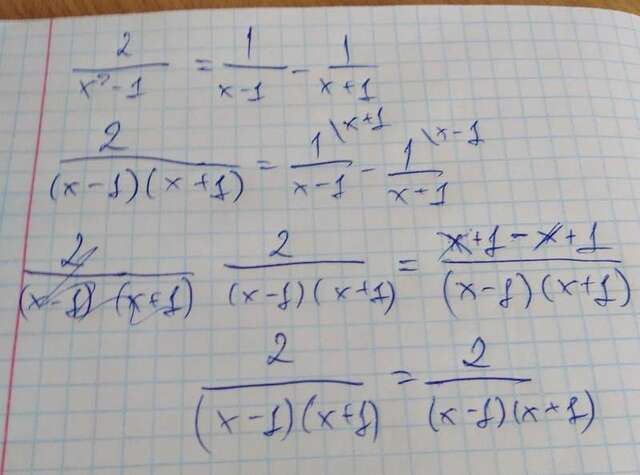 2/(x²-1) = 1/(x-1) - 1/(x+1)
2/((x-1)(x+1)) = 1\x+1/(x-1) - 1\x-1/(x+1)
2/((x-1)(x+1)) 2/((x-1)(x+1)) = (x+1-x+1)/((x-1)(x+1))
2/((x-1)(x+1)) = 2/((x-1)(x+1))